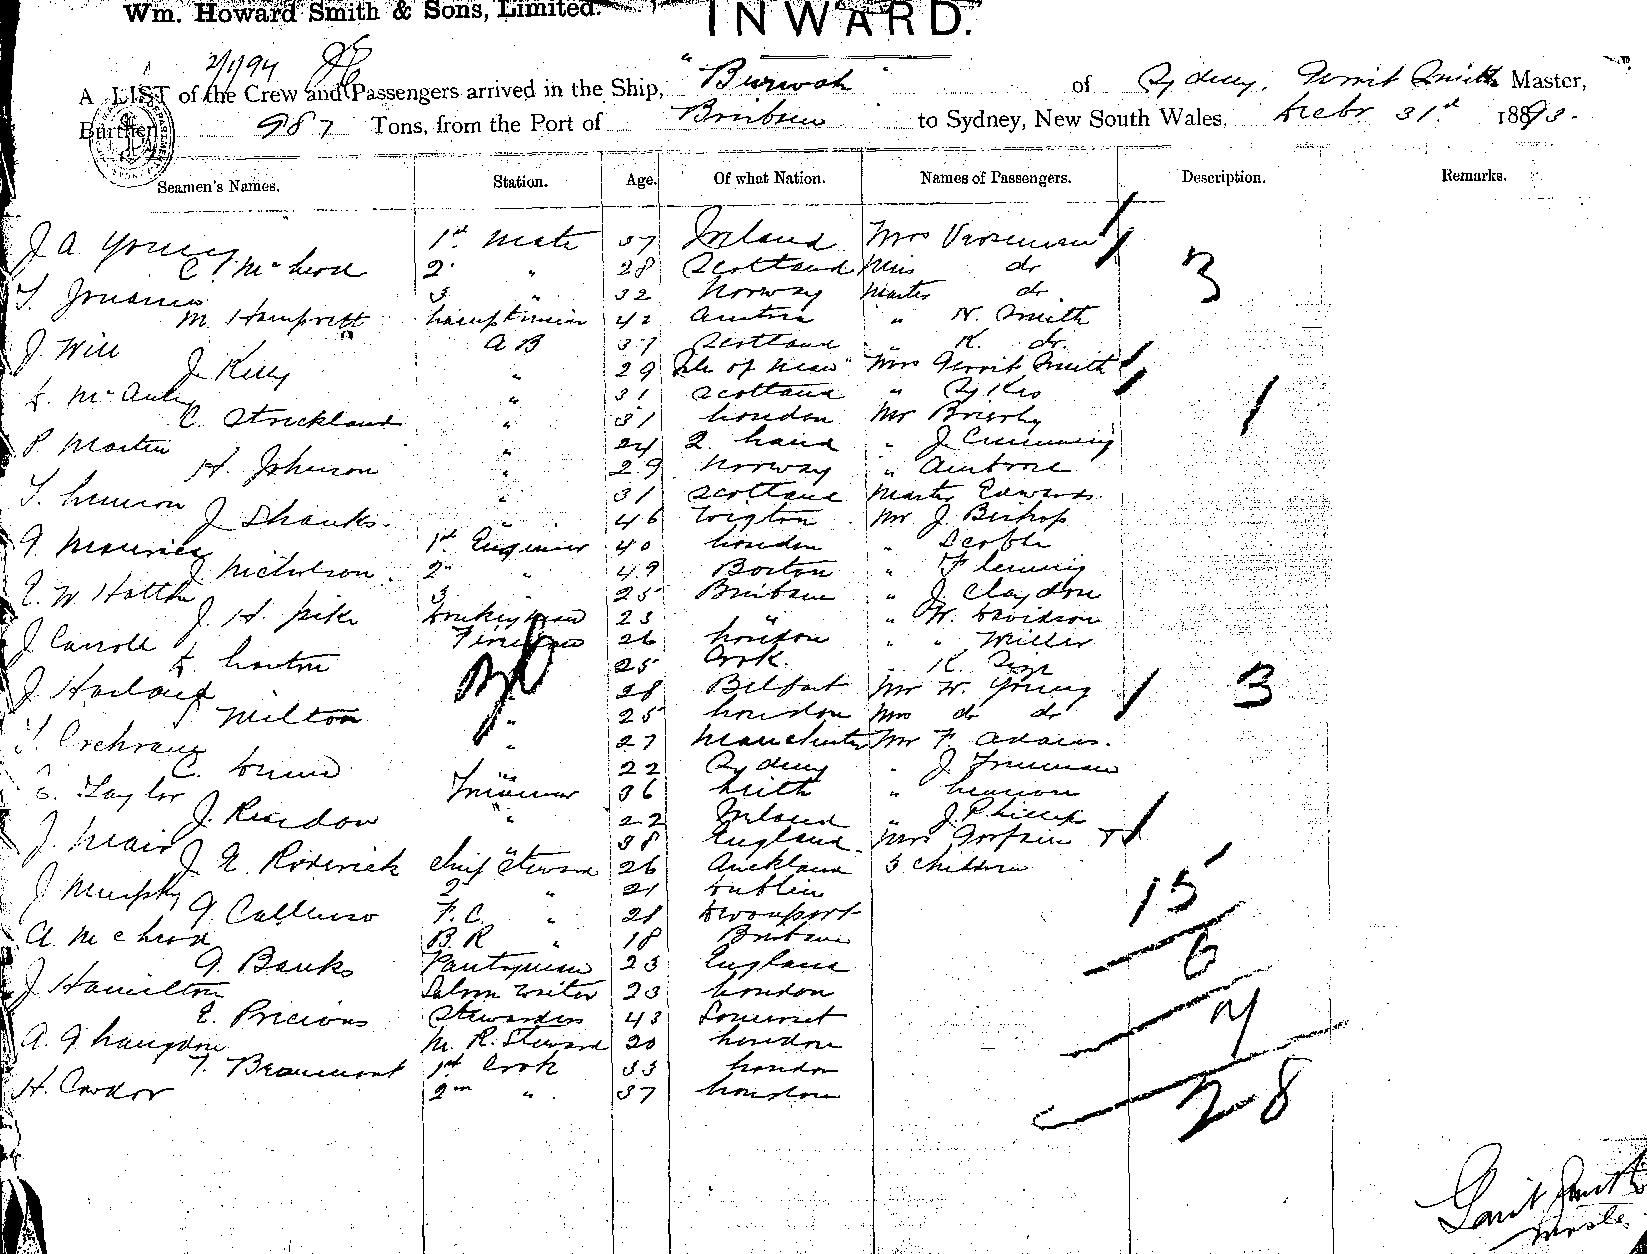 Wm. Howard Smith & Sons, Limited.
INWARD.
2/1/94
A LIST of the Crew and Passengers arrived in the Ship, "Burwah" of Sydney, Gerrit Smith Master,
Burthen 987 Tons, from the Port of Brisbane to Sydney, New South Wales. Decbr 31st 1893.
Seamen's Names. Station. Age. Of what Nation. Names of Passengers. Description. Remarks.
J A Young 1st Mate 37 Ireland Mrs
C McLeod 2 " 28 Scotland Miss do 3
3 " 32 Norway Master do
M. Lamptrimmer 42 Austria " W. Smith
J Will A B 37 Scotland " K. do.
J Kelly " 29 Isle of Man Mrs Gerrit Smith
McAuley " 31 Scotland " Sykes
C. Strickland " 31 London Mr Brierly 1
P Martin " 24 Q. land " J Cumming
H. Johnson " 29 Norway " Ambrose
T. Lennon " 31 Scotland Master Edwards
J Shanks. 46 Wigton Mr J. Bishop
1st Engineer 40 London "
J Nicholson 2nd " 49 Boston " Fleming
E. W Hatton 3 25 Brisbane " J. Claydon
J. H. Pike Donkeyman 23 " " W. Davidson
J Carroll Fireman 26 London " " Miller
25 Cork. " K.
J Harland 28 Belfast Mr W. Young 3
Milton " 25 London Mrs do do
T. Cochrane " 27 Manchester Mr F. Adams.
C. Dunn 22 Sydney " J. Freeman
Taylor Trimmer 36 Leith " Lennon
J. Reardon " 22 Ireland " J. Phillips
J. Mair " 38 England Mrs &
J. E. Roderick Chief Steward 26 Auckland 3 Children
J Murphy 2 " 21 Dublin 15
F. C. " 21 Devonport
A. McLeod B. R " 18 Brisbane 6
G. Banks Pantryman 23 England
J Hamilton Saloon Waiter 23 London 7
E. Precious Stewardess 43 Somerset
A. G Langdon M. R. Steward 20 London
T. Beaumont 1st Cook 33 London 28
H. Cardor 2nd " 37 London
Gerrit Smith
Master